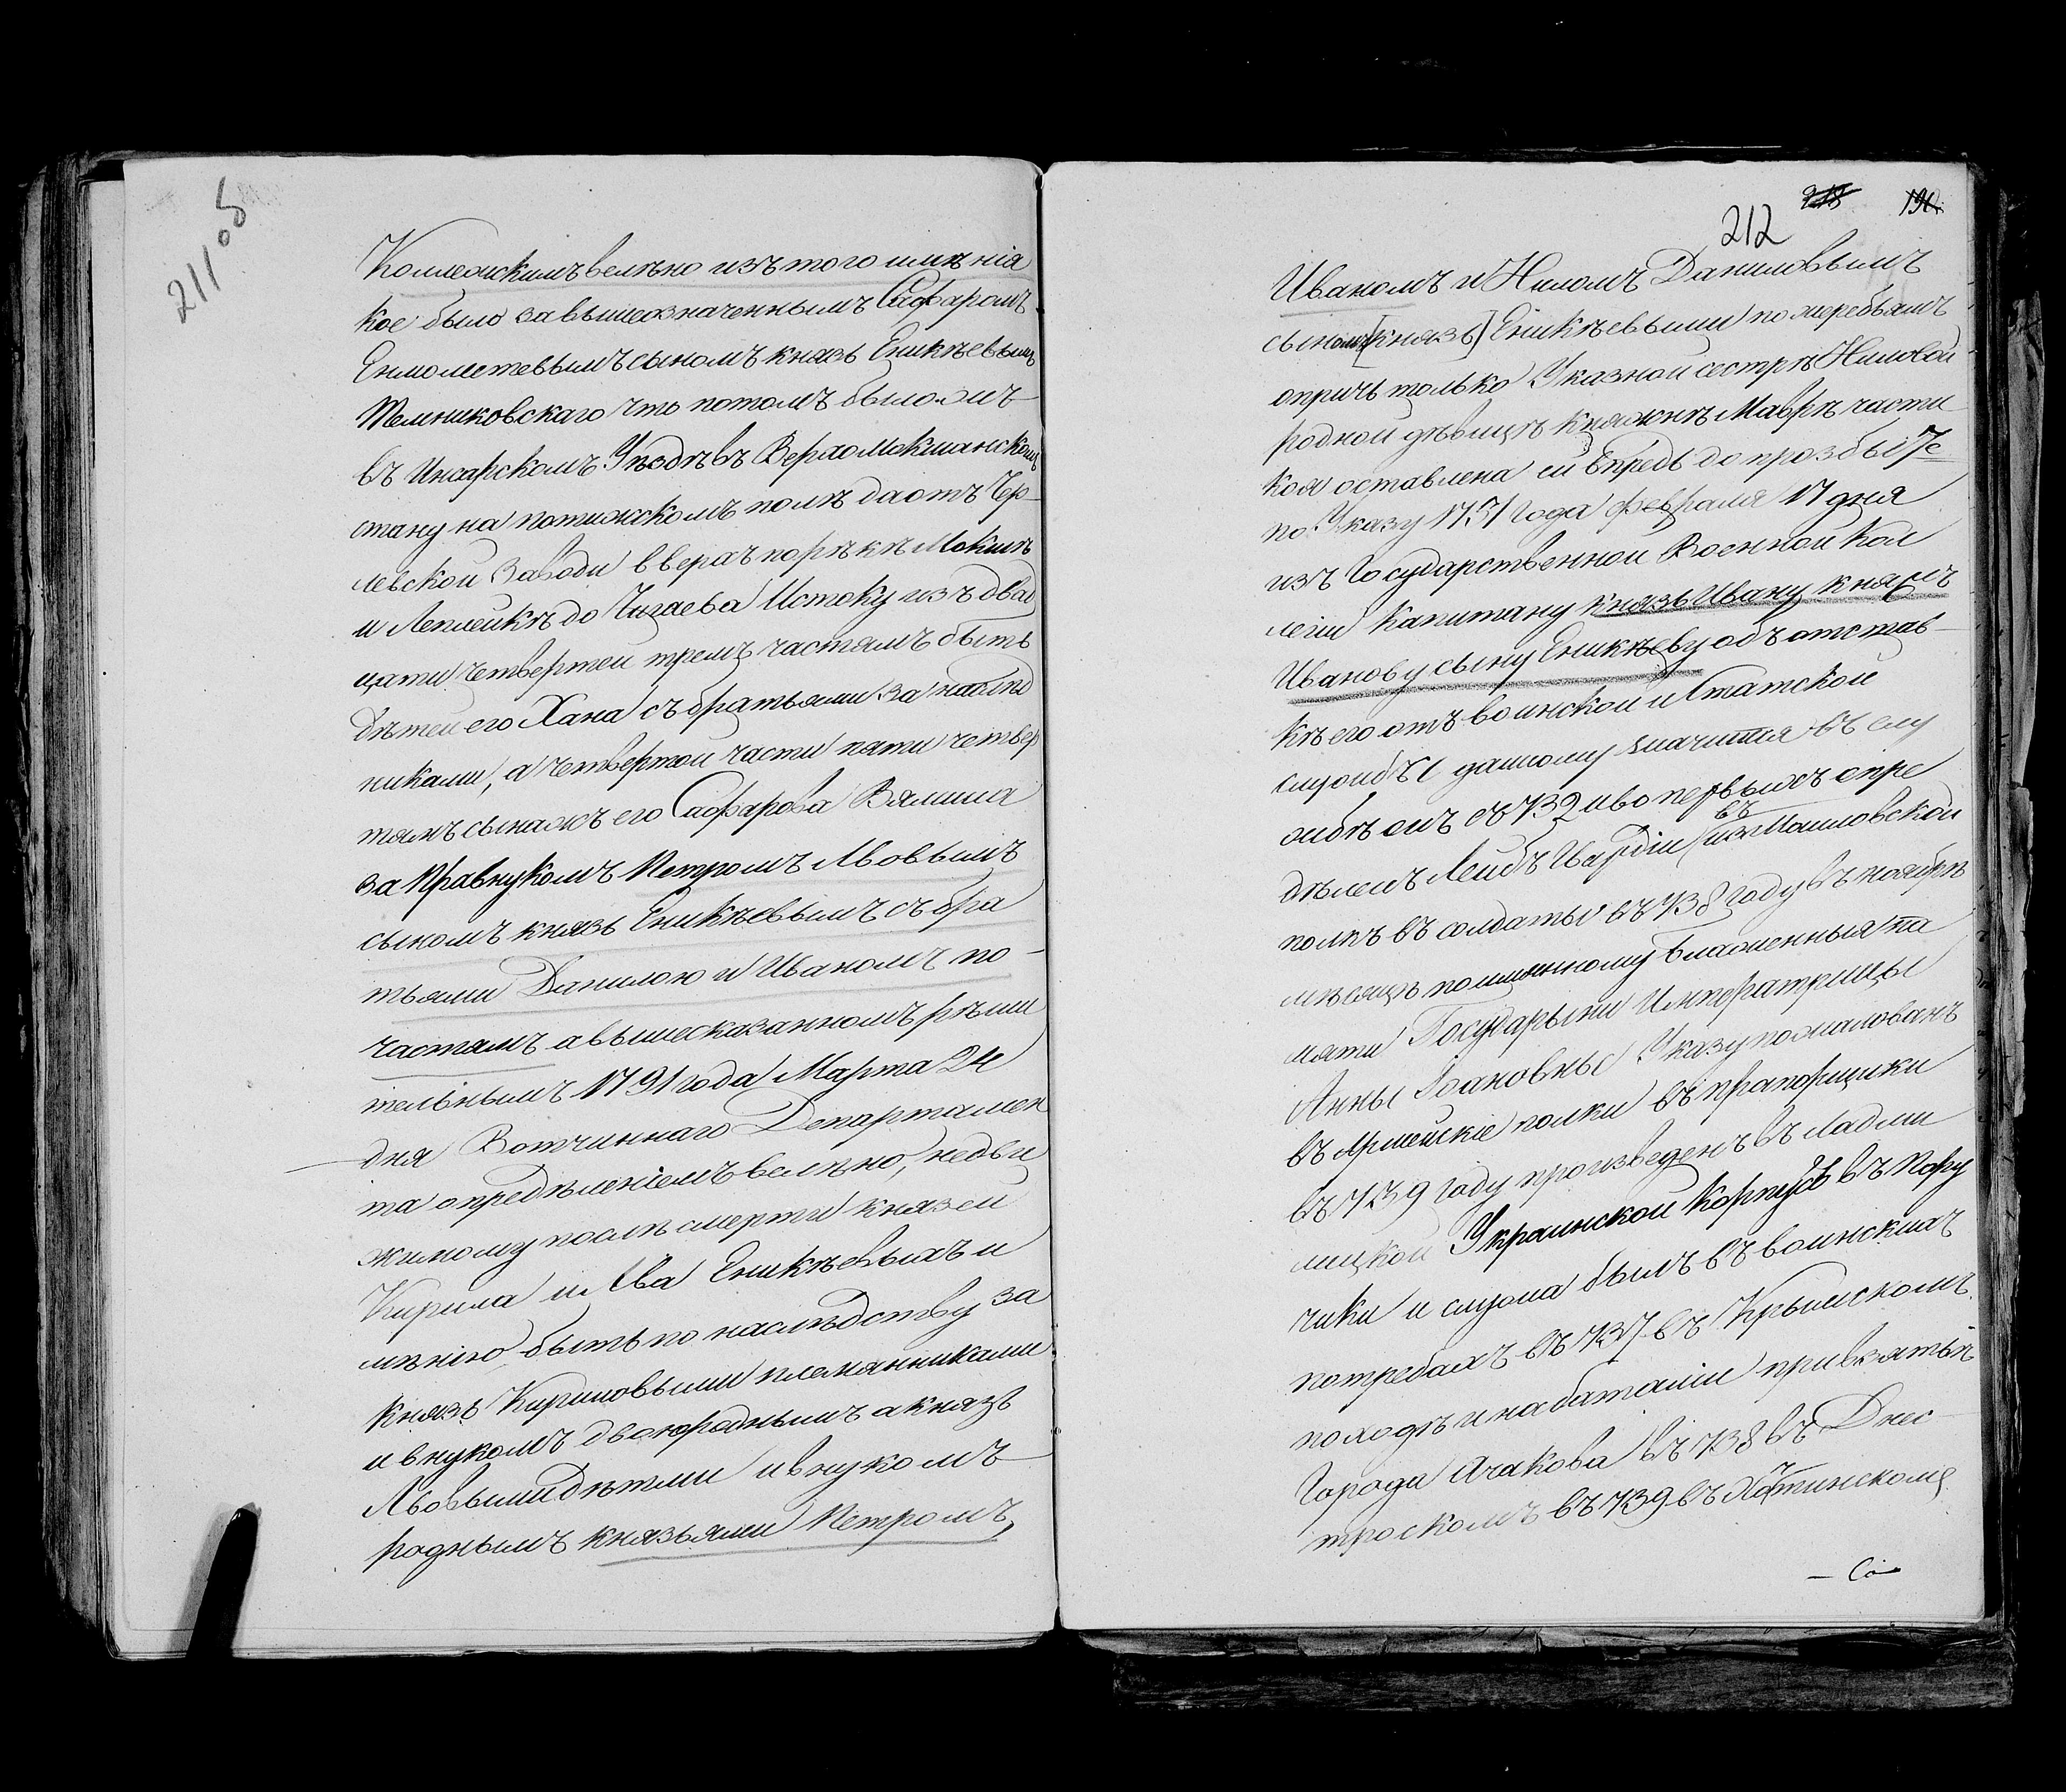 211 об
Коллежскимъ велѣно изъ того имѣнія
кое было за вышеозначеннымъ Сафаромъ
Енмолетевымъ сыномъ князь Еникѣевымъ
Темниковскаго что потомъ было
въ Инсарскомъ Уѣздѣ въ Верхомокшанскомъ
стану на потижскомъ полѣ да отъ Чер-
левской Заводи вверхъ по рѣкѣ Мокшѣ
и Леплейкѣ до Чигаева Истоку изъ двад
цати четвертей тремъ частямъ быть
дѣтей его Хана съ братьями за наслѣд
никами, а четвертой части пяти четвер
тямъ сынамъ его Сафарова Вялиша
за Правнукомъ Петромъ Львовымъ
сыномъ князь Еникѣевымъ съ бра
тьями Данилою и Иваномъ по-
частямъ а вышесказанномъ рѣши
тельнымъ 1791 года Марта 24
дня Вотчиннаго Департамен
та опредѣленіемъ велѣно, недви
жимому послѣ смерти князей
Кирила и Льва Еникѣевыхъ и
мѣнію быть по наслѣдству за
князь Кириловыми племянниками
и внукомъ двоюроднымъ а князь
Львовыми дѣтми и внукомъ
роднымъ князьями Петромъ,
212 218 190
Иваномъ и Ниломъ Даниловымъ
сыномъ [князь] Еникѣевыми по жеребьямъ
опричь только Указной сестрѣ Ниловой
родной дѣвицѣ княжнѣ Маврѣ части
коя оставлена ей впредь до прозбы 7е
по Указу 1751 года февраля 17 дня
изъ Государственной Военной Кол
легіи Капитану князь Ивану княжъ
Иванову сыну Еникѣеву объ отстав-
кѣ его отъ воинской и Статской
службы данному значится въ слу
жбѣ онъ съ 732 и во первыхъ опре
дѣленъ Лейбъ Гвардіи въ Измаиловской
полкъ въ солдаты въ 738 году въ ноябрѣ
мѣсяцѣ по имянному блаженныя па
мяти Государыни Императрицы
Анны Іоановны Указу пожалованъ
въ Армейскіе полки въ прапорщики
въ 739 году произведенъ въ Ладми
лицкой Украинской Корпусъ въ Пору
чики и служа былъ въ воинскихъ
потребахъ въ 737 въ Крымскомъ
походѣ и на баталіи при взятьѣ
Города Ачакова въ 738 въ Днес
троскомъ въ 739 въ Хотинскомъ